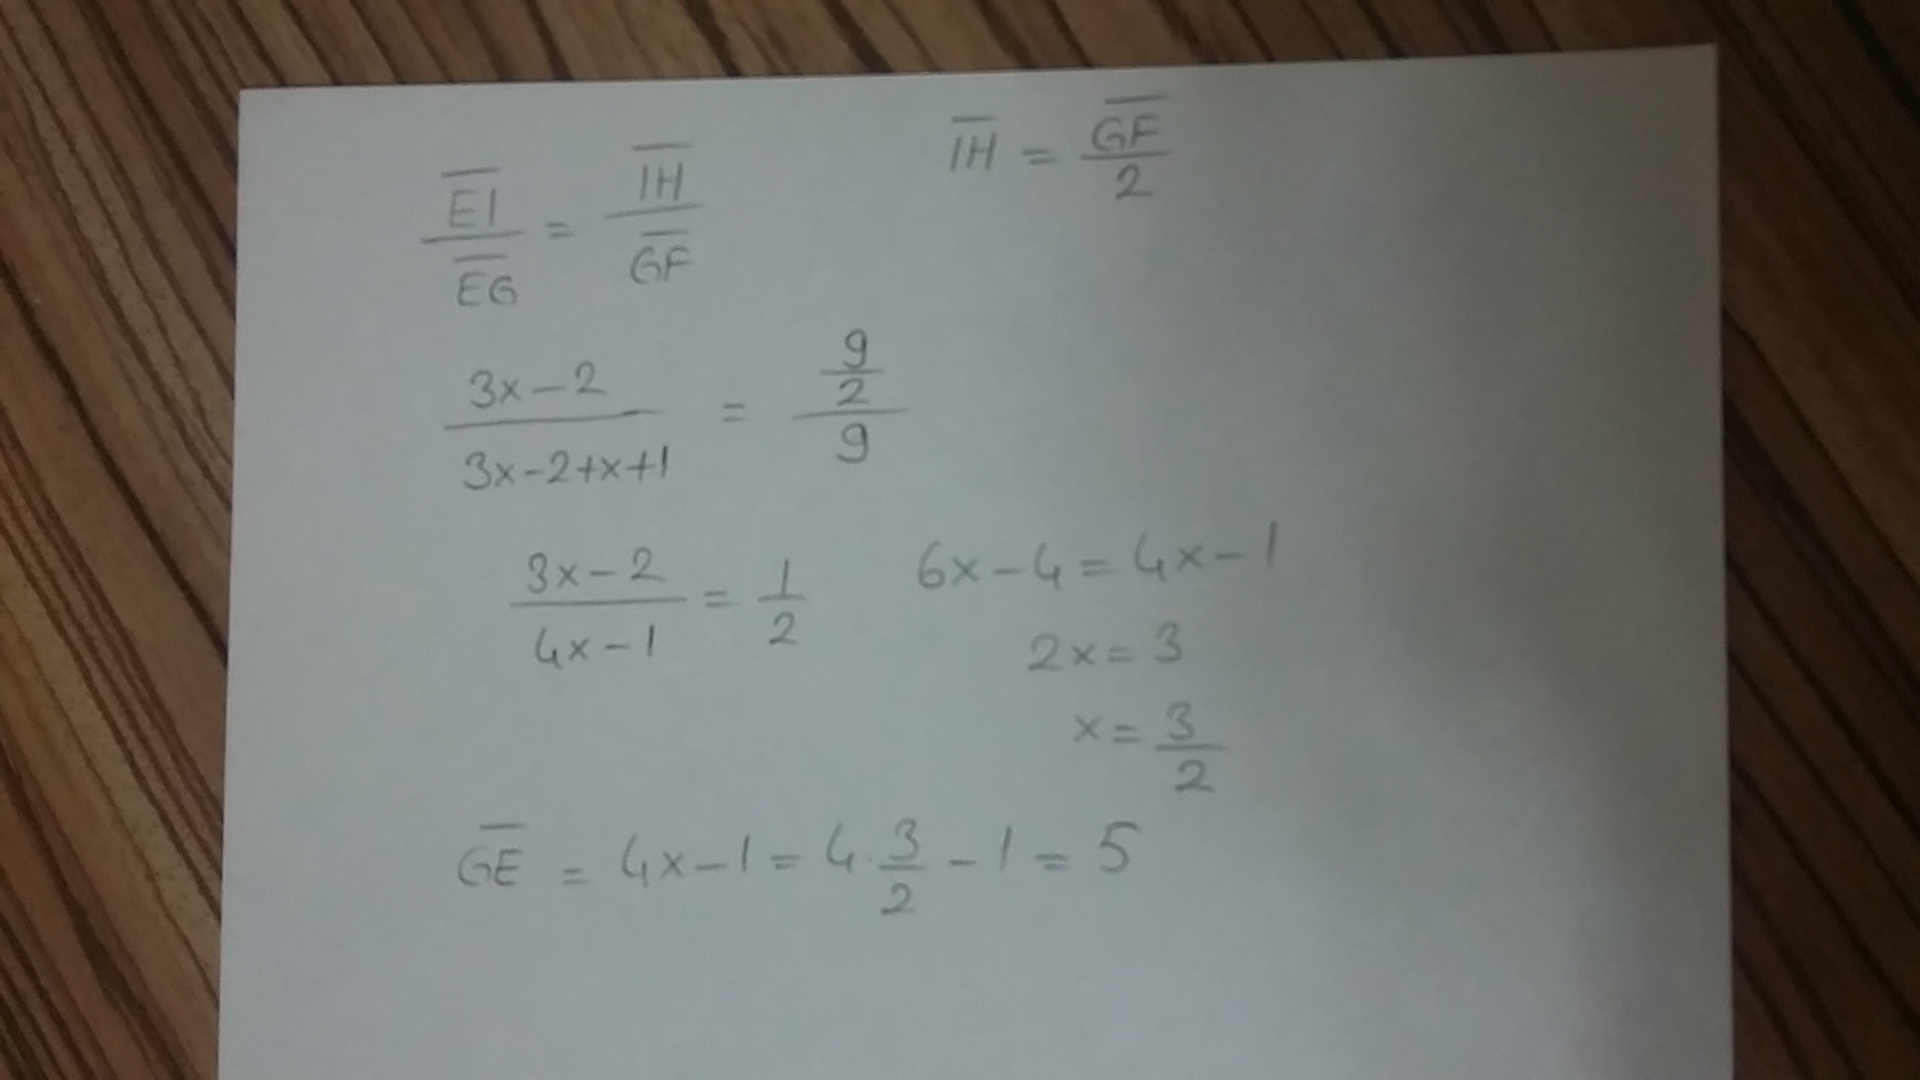 EI/EG = IH/GF
IH = GF/2
3x-2/3x-2+x+1 = 9/2/9
3x-2/4x-1 = 1/2
6x-4=4x-1
2x=3
x=3/2
GE = 4x-1=4.3/2-1=5